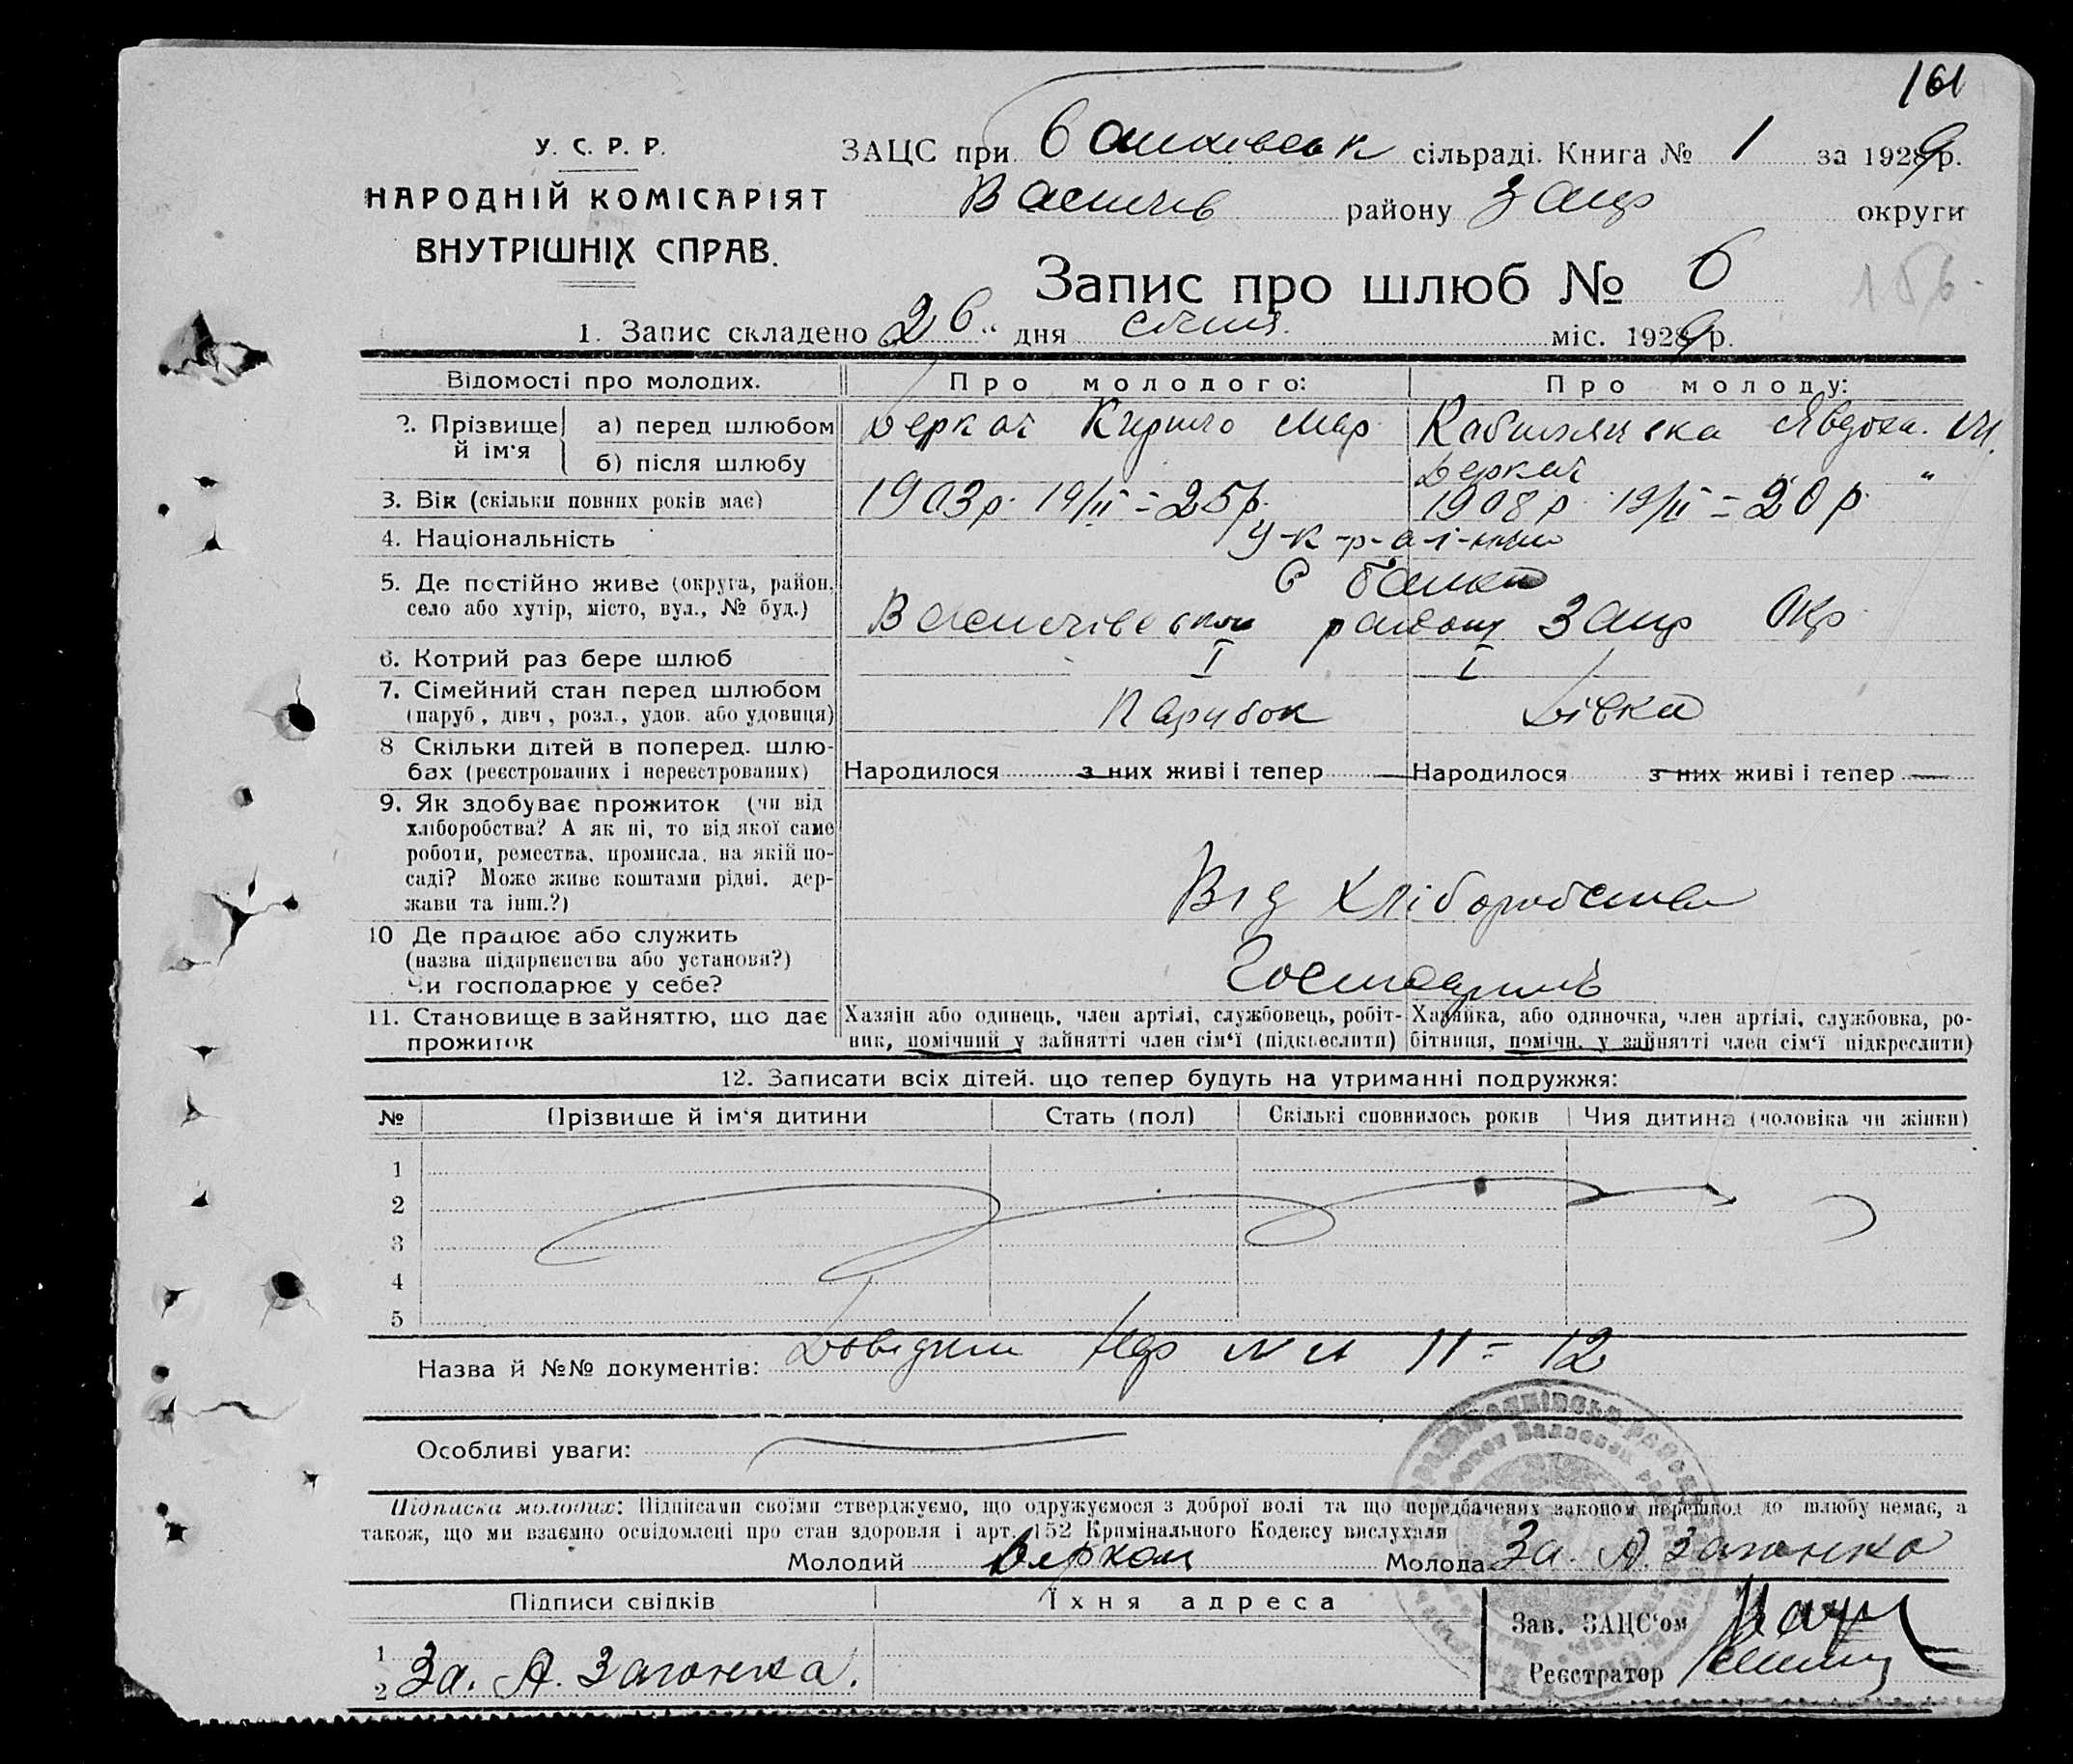 161
У. С. Р. Р.
НАРОДНІЙ КОМІСАРІЯТ
ВНУТРІШНІХ СПРАВ.
ЗАЦС при Балківськ сільраді. Книга № 1 за 1929 р.
Василів району Запр округи
Запис про шлюб № 6
156.
1. Запис складено 26 „ дня січня міс. 1929 р.
Відомості про молодих. Про молодого: Про молоду:
2. Прізвище й ім'я а) перед шлюбом Деркач Кирило Мар Явдоха
б) після шлюбу Деркач "
3. Вік (скільки повних років має) 1903 р. 19/II = 25 р. 1908 р. 19/II = 20 р.
4. Національність У-к-р-а-ї-нці
5. Де постійно живе (округа, район, с Балки
село або хутір, місто, вул., № буд.) Василівського району Запр Окр
6. Котрий раз бере шлюб I I
7. Сімейний стан перед шлюбом
(паруб., дівч., розл., удов. або удовиця) Парубок Дівка
8 Скільки дітей в поперед. шлю-
бах (реєстрованих і нереєстрованих) Народилося з них живі і тепер — Народилося з них живі і тепер —
9. Як здобуває прожиток (чи від
хліборобства? А як ні, то від якої саме
роботи, ремества, промисла, на якій по-
саді? Може живе коштами рідні, дер-
жави та інш.?) Від хліборобства
10 Де працює або служить
(назва підприємства або установи?)
Чи господарює у себе?
11. Становище в зайняттю, що дає
прожиток
Хазяїн або одинець, член артілі, службовець, робіт-
ник, помічний у зайнятті член сім'ї (підкреслити)
Хазяйка, або одиночка, член артілі, службовка, ро-
бітниця, помічн. у зайнятті член сім'ї підкреслити)
12. Записати всіх дітей, що тепер будуть на утриманні подружжя:
№ Прізвище й ім'я дитини Стать (пол) Скількі сповнилось років Чия дитина (чоловіка чи жінки)
1
2
3
4
5
Назва й №№ документів: Довідки 11 = 12
Особливі уваги:
Підписка молодих: Підписами своїми стверджуємо, що одружуємося з доброї волі та що передбачених законом перешкод до шлюбу немає, а
також, що ми взаємно освідомлені про стан здоровля і арт. 152 Кримінального Кодексу вислухали
Молодий Деркач Молода За. А. Загонка
Підписи свідків Їхня адреса
Зав. ЗАЦС'ом
1
2 За. А. Загонка.
Реєстратор